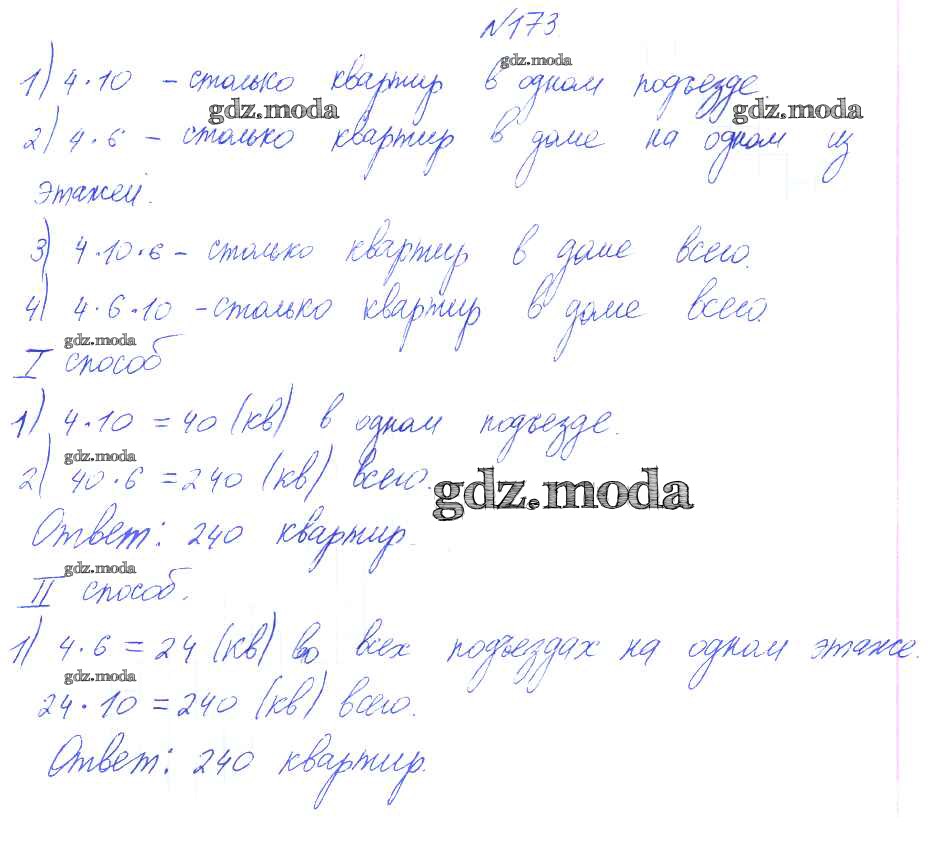 №173
gdz.moda
1) 4·10 – столько квартир в одном подъезде.
gdz.moda gdz.moda
2) 4·6 – столько квартир в доме на одном из
этажей.
3) 4·10·6 – столько квартир в доме всего.
4) 4·6·10 – столько квартир в доме всего.
gdz.moda
I способ
1) 4·10 = 40 (кв) в одном подъезде.
gdz.moda
2) 40·6 = 240 (кв) всего.
gdz.moda
Ответ: 240 квартир.
gdz.moda
II способ.
1) 4·6 = 24 (кв) во всех подъездах на одном этаже.
gdz.moda
24·10 = 240 (кв) всего.
Ответ: 240 квартир.